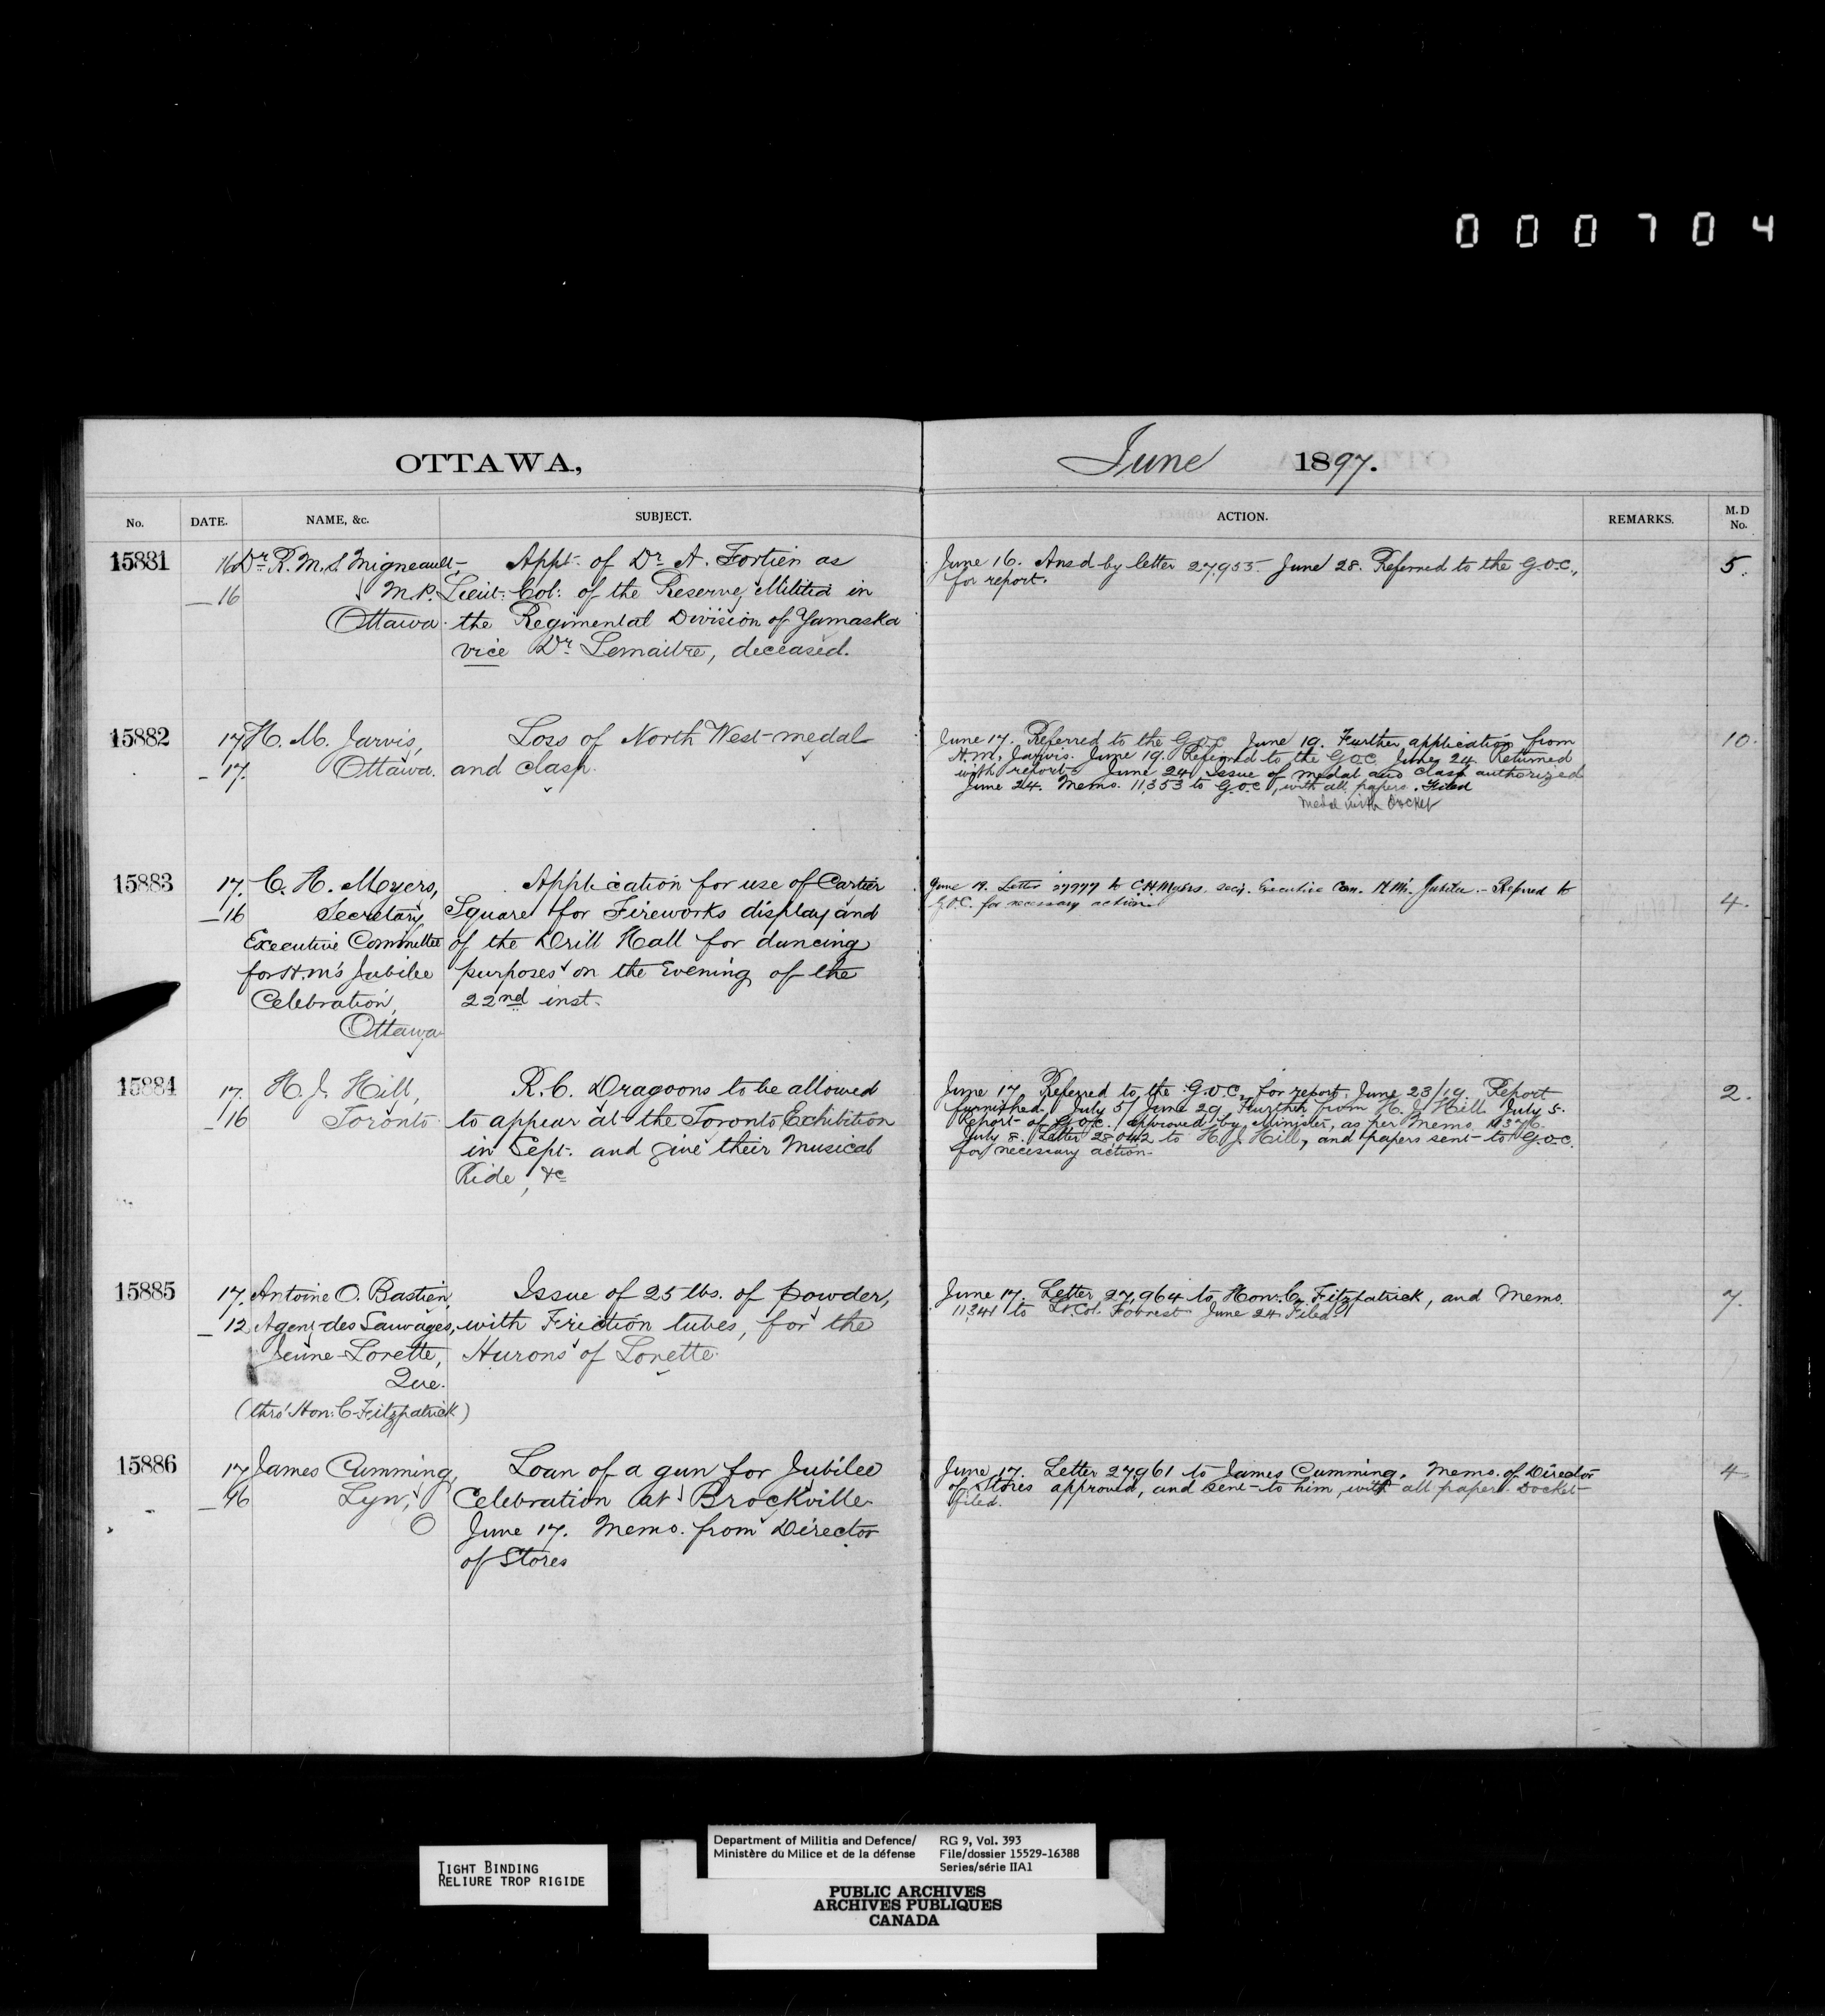 000704
OTTAWA,
June 1897.
No. DATE. NAME, &c. SUBJECT. ACTION. REMARKS. M.D No.
15881
16 Dr. R. M. S. Migneault,
16 M.P.
Ottawa.
Appt. of Dr. A. Fortier as
Lieut: Col: of the Reserve Militia in
the Regimental Division of Yamaska
vice Dr. Lemaitre, deceased.
June 16. Ansd by letter 27,955. June 28. Referred to the G.O.C.,
for report.
5.
15882
17 H. M. Jarvis,
17. Ottawa.
Loss of North West medal
and clasp.
June 17. Referred to the G.O.C. June 19. Further application from
H. M. Jarvis. June 19. Referred to the G.O.C. June 24. Returned
with report. June 24. Issue of medal and clasp authorized
June 24. Memo. 11,353 to G.O.C., with all papers. Filed
Medal with Docket
10.
15883
17. C. H. Meyers,
16 Secretary
Executive Committee
for H.M's Jubilee
Celebration,
Ottawa
Application for use of Cartier
Square for Fireworks display and
of the Drill Hall for dancing
purposes on the Evening of the
22nd inst.
June 19. Letter 27977 to C.H. Myers, Secy. Executive Com. H.M's. Jubilee. - Referred to
G.O.C. for necessary action.
4.
15884
17. H. J. Hill,
16 Toronto
R.C. Dragoons to be allowed
to appear at the Toronto Exhibition
in Sept: and give their Musical
Ride, &c
June 17. Referred to the G.O.C., for report. June 23/19. Report
furnished. July 5/June 29. Further from H. J. Hill. July 5.
Report of G.O.C. approved by Minister, as per Memo. 11376.
July 8. Letter 28,042 to H. J. Hill, and papers sent to G.O.C.
for necessary action.
2.
15885
17. Antoine O. Bastien,
12 Agent des Sauvages,
Jeune-Lorette,
Que.
(thro' Hon: C. Fitzpatrick)
Issue of 25 lbs. of powder,
with Friction tubes, for the
Hurons of Lorette.
June 17. Letter 27,964 to Hon: C. Fitzpatrick, and Memo.
11,341 to Lt. Col. Forrest. June 24. Filed.
7.
15886
17 James Cumming,
16 Lyn,
O
Loan of a gun for Jubilee
Celebration at Brockville
June 17. Memo. from Director
of Stores
June 17. Letter 27,961 to James Cumming. Memo. of Director
of Stores approved, and sent to him, with all papers. Docket
filed.
4
TIGHT BINDING
RELIURE TROP RIGIDE
Department of Militia and Defence/
Ministère du Milice et de la défense
RG 9, Vol. 393
File/dossier 15529-16388
Series/série IIA1
PUBLIC ARCHIVES
ARCHIVES PUBLIQUES
CANADA